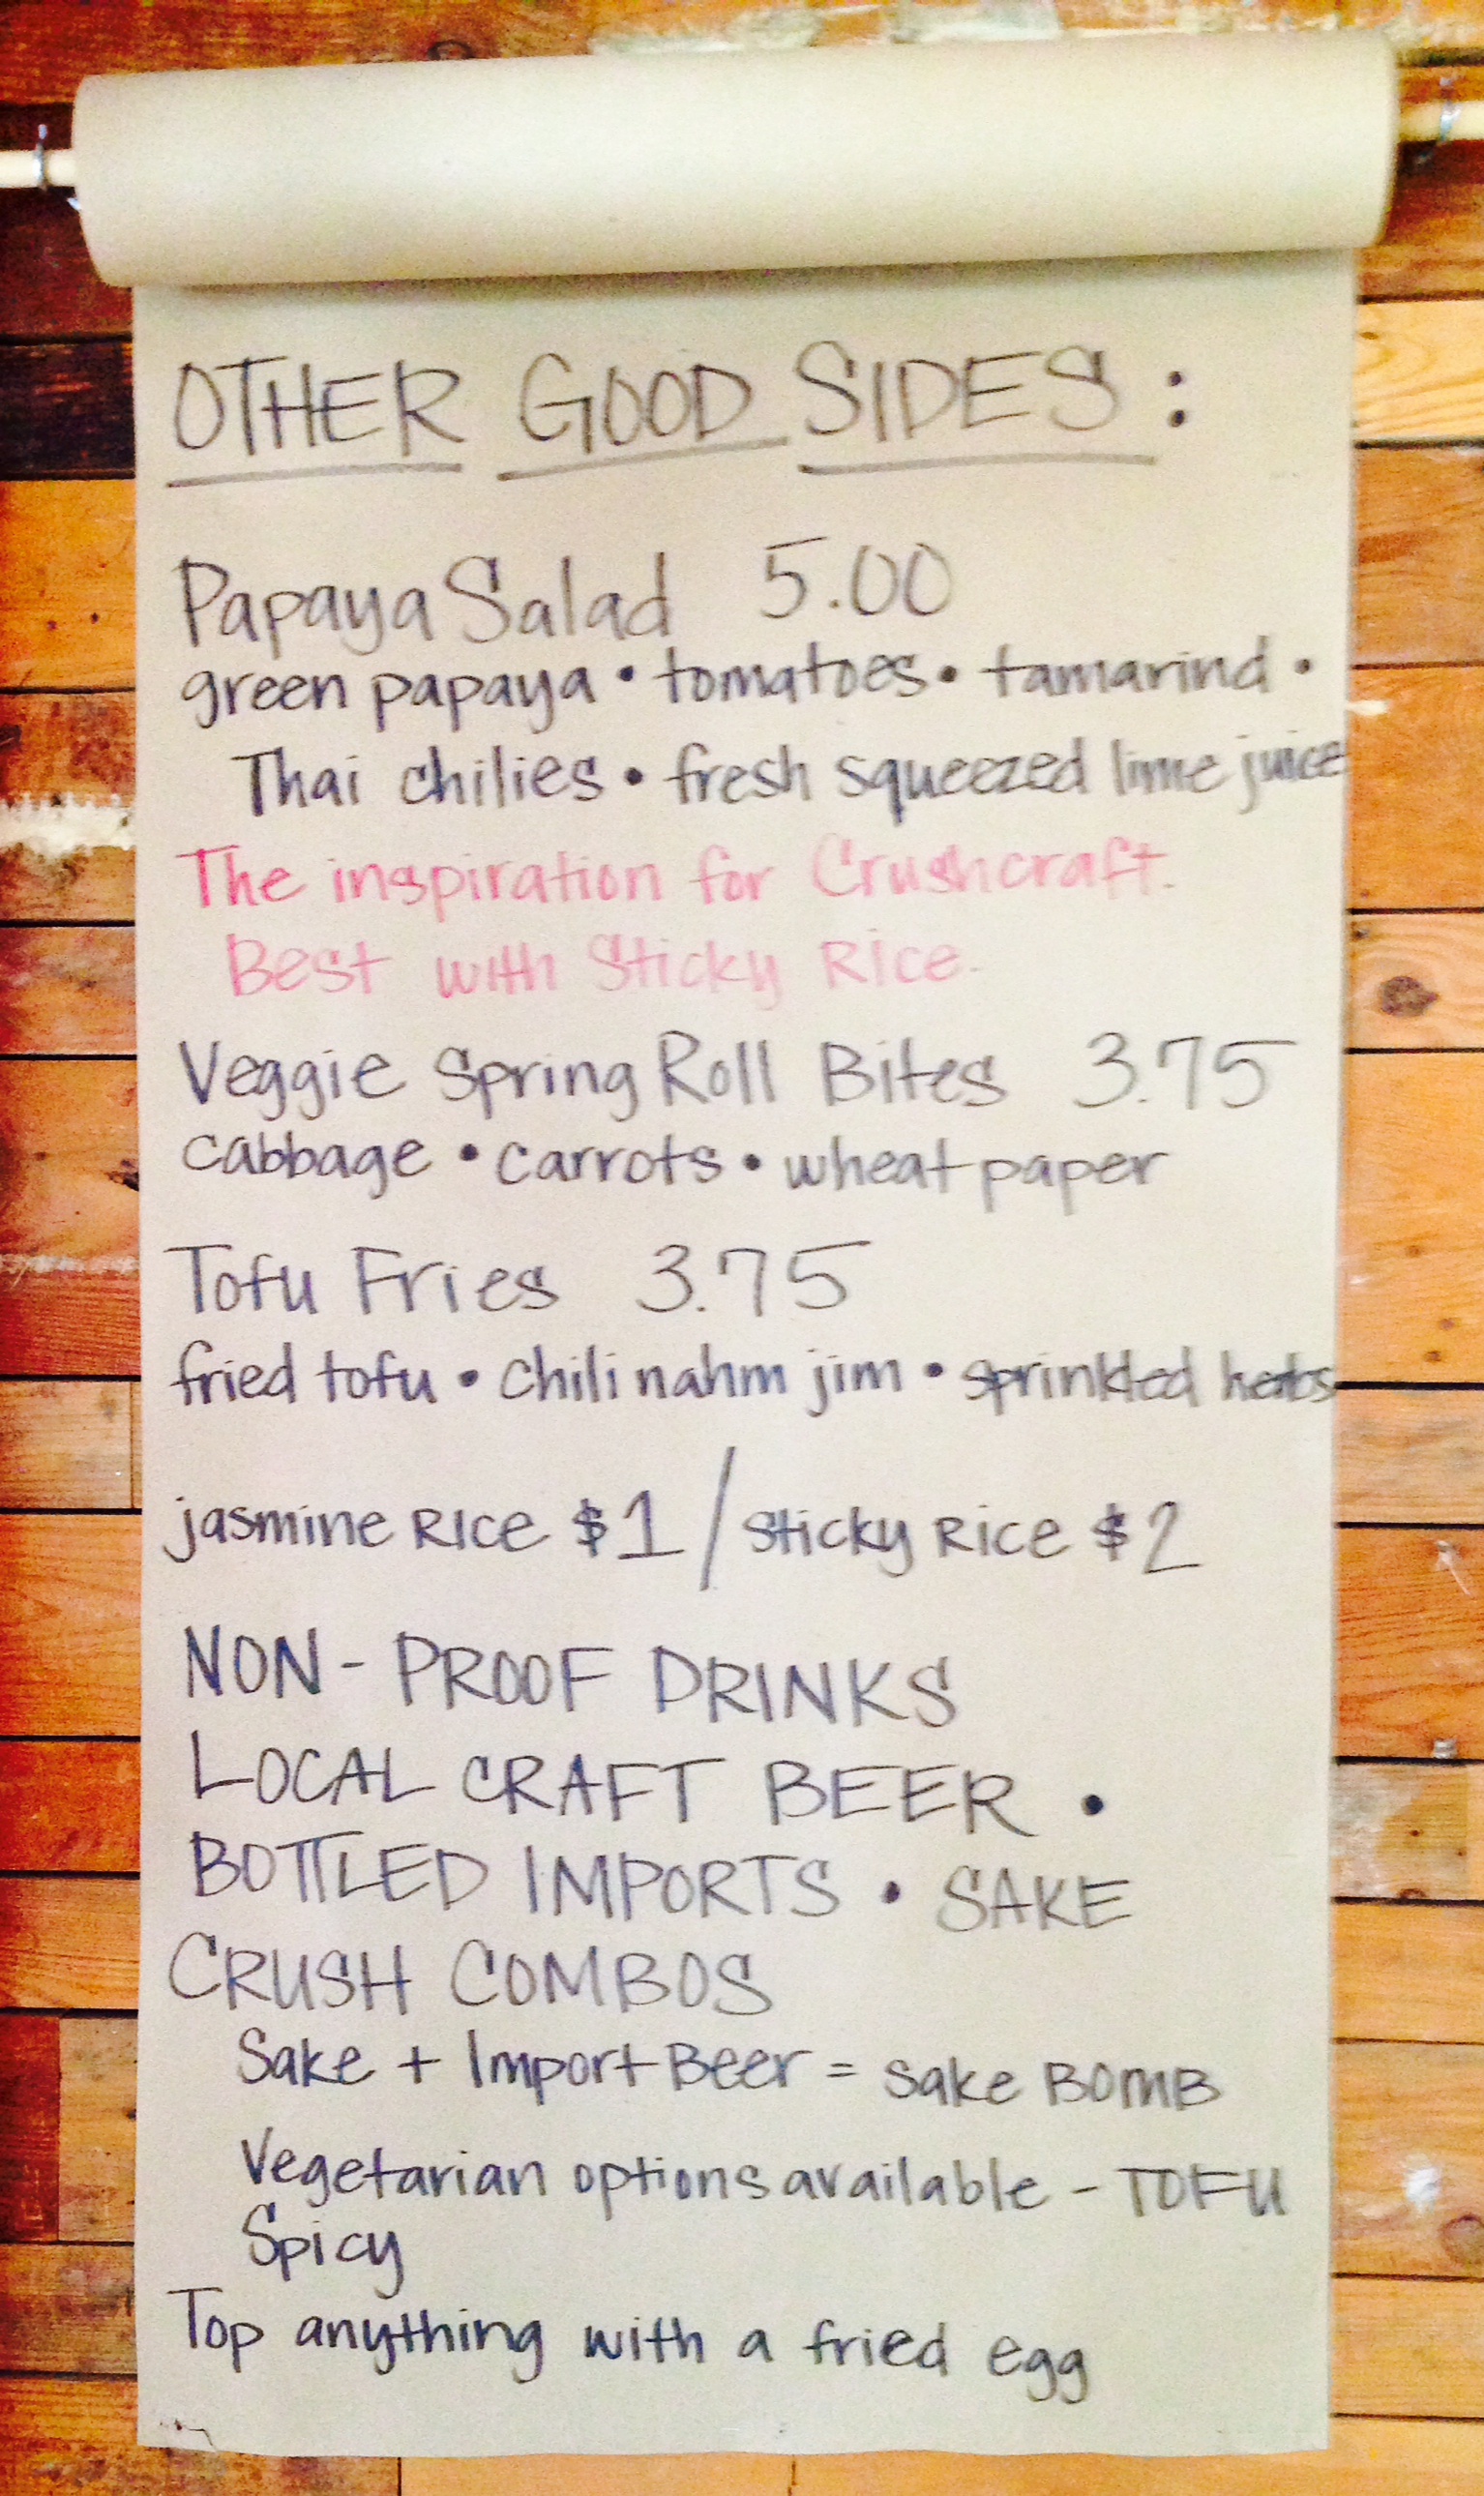 OTHER GOOD SIDES:
Papaya Salad 5.00
green papaya • tomatoes • tamarind •
Thai chilies • fresh squeezed lime juice
The inspiration for Crushcraft.
Best with Sticky Rice.
Veggie Spring Roll Bites 3.75
cabbage • carrots • wheat paper
Tofu Fries 3.75
fried tofu • chili nahm jim • sprinkled herbs
jasmine Rice $1 / sticky Rice $2
NON-PROOF DRINKS
LOCAL CRAFT BEER •
BOTTLED IMPORTS • SAKE
CRUSH COMBOS
Sake + Import Beer = sake BOMB
Vegetarian options available - TOFU
Spicy
Top anything with a fried egg